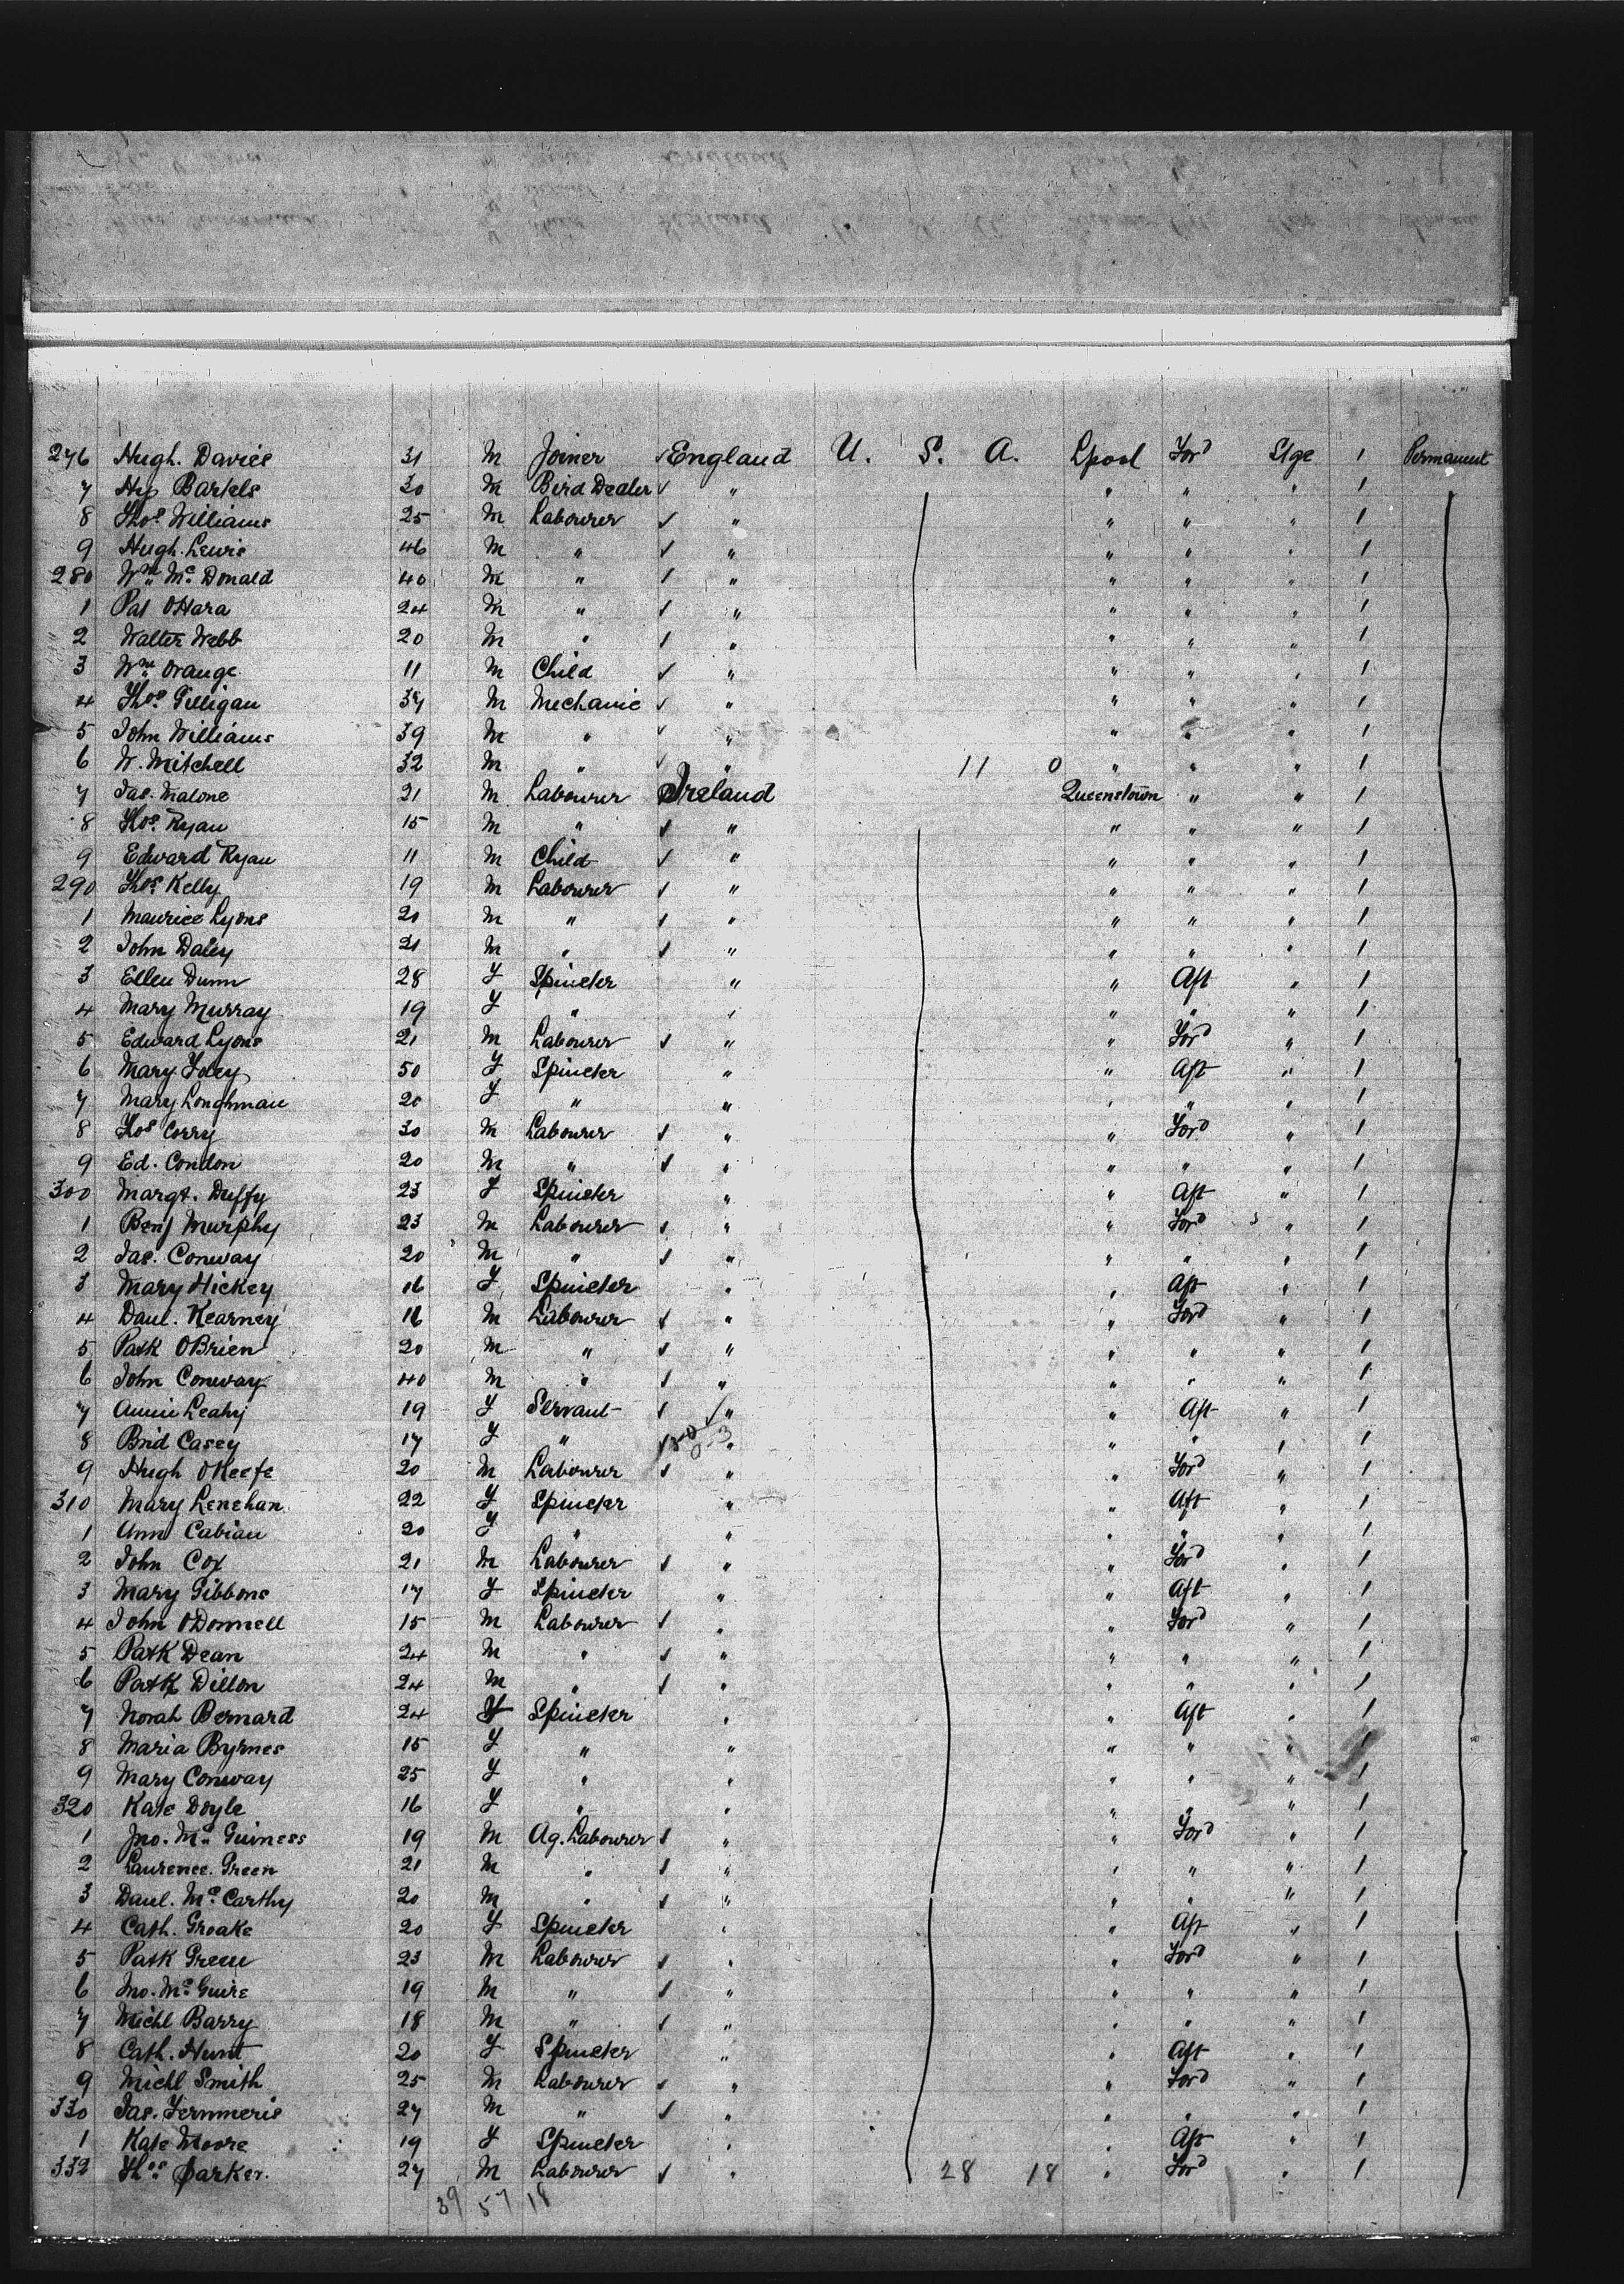 276 Hugh. Davies 31 M Joiner ✓ England U. S. A. Lpool Ford Stge 1 Permanent
7 Hy Bartels 30 M Bird Dealer ✓ " " " " 1
8 Thos Williams 25 M Labourer ✓ " " " " 1
9 Hugh. Lewis 46 M " ✓ " " " " 1
280 Wm Mc Donald 40 M " ✓ " " " " 1
1 Pat OHara 24 M " ✓ " " " " 1
2 Walter Webb 20 M " ✓ " " " " 1
3 Wm Orange 11 M Child ✓ " " " " 1
4 Thos. Gilligan 37 M Mechanic ✓ " " " " 1
5 John Williams 39 M " ✓ " " " " 1
6 W. Mitchell 32 M " ✓ " 11 0 " " " 1
7 Jas. Malone 21 M Labourer Ireland Queenstown " " 1
8 Thos. Ryan 15 M " ✓ " " " " 1
9 Edward Ryan 11 M Child ✓ " " " " 1
290 Thos. Kelly 19 M Labourer ✓ " " " " 1
1 Maurice Lyons 20 M " ✓ " " " " 1
2 John Daley 21 M " ✓ " " " " 1
3 Ellen Dunn 28 F Spinster " " Aft " 1
4 Mary Murray 19 F " " " " " 1
5 Edward Lyons 21 M Labourer ✓ " " Ford " 1
6 Mary Foley 50 F Spinster " " Aft " 1
7 Mary Loughman 20 F " " " " " 1
8 Thos Corry 30 M Labourer ✓ " " Ford " 1
9 Ed. Condon 20 M " ✓ " " " " 1
300 Margt. Duffy 23 F Spinster " " Aft " 1
1 Benj Murphy 23 M Labourer ✓ " " Ford " 1
2 Jas. Conway 20 M " ✓ " " " " 1
3 Mary Hickey 16 F Spinster " " Aft " 1
4 Danl. Kearney 16 M Labourer ✓ " " Ford " 1
5 Patk OBrien 20 M " ✓ " " " " 1
6 John Conway 40 M " ✓ " " " " 1
7 Annie Leahy 19 F Servant ✓ " " Aft " 1
8 Brid Casey 17 F " ✓ " " " " 1
9 Hugh OKeefe 20 M Labourer ✓ " " Ford " 1
310 Mary Lenehan 22 F Spinster " " Aft " 1
1 Ann Cabian 20 F " " " " " 1
2 John Cox 21 M Labourer ✓ " " Ford " 1
3 Mary Gibbons 17 F Spinster " " Aft " 1
4 John ODonnell 15 M Labourer ✓ " " Ford " 1
5 Patk Dean 24 M " ✓ " " " " 1
6 Patk Dillon 24 M " ✓ " " " " 1
7 Norah Bernard 24 F Spinster " " Aft " 1
8 Maria Byrnes 15 F " " " " " 1
9 Mary Conway 25 F " " " " " 1
320 Kate Doyle 16 F " " " " " 1
1 Jno. Mc Guiness 19 M Ag. Labourer ✓ " " Ford " 1
2 Laurence. Green 21 M " ✓ " " " " 1
3 Danl. Mc Carthy 20 M " ✓ " " " " 1
4 Cath. Groake 20 F Spinster " " Aft " 1
5 Patk Green 23 M Labourer ✓ " " Ford " 1
6 Jno. Mc Guire 19 M " ✓ " " " " 1
7 Michl Barry 18 M " ✓ " " " " 1
8 Cath. Hunt 20 F Spinster " " Aft " 1
9 Michl Smith 25 M Labourer ✓ " " Ford " 1
330 Jas. 27 M " ✓ " " " " 1
1 Kate Moore 19 F Spinster " " Aft " 1
332 Thos Parker. 27 M Labourer ✓ " 28 18 " Ford " 1
39 57 18